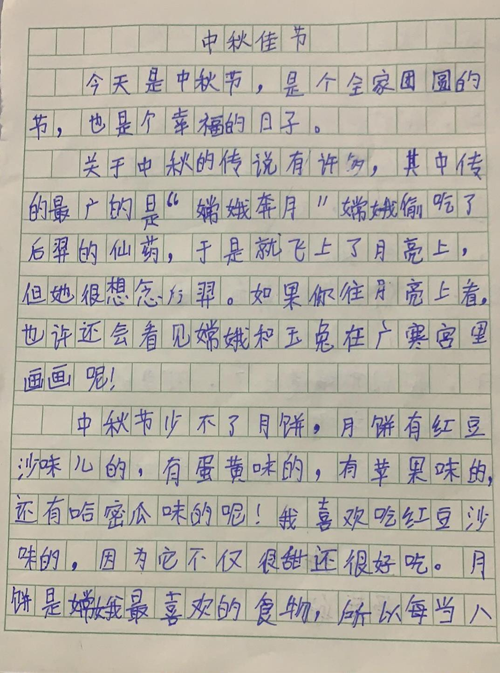 中秋佳节
今天是中秋节，是个全家团圆的
节，也是个幸福的日子。
关于中秋的传说有许多，其中传
的最广的是“嫦娥奔月”嫦娥偷吃了
后羿的仙药，于是就飞上了月亮上，
但她很想念后羿。如果你往月亮上看，
也许还会看见嫦娥和玉兔在广寒宫里
画画呢！
中秋节少不了月饼，月饼有红豆
沙味儿的，有蛋黄味的，有苹果味的，
还有哈密瓜味的呢！我喜欢吃红豆沙
味的，因为它不仅很甜还很好吃。月
饼是嫦娥最喜欢的食物，所以每当八